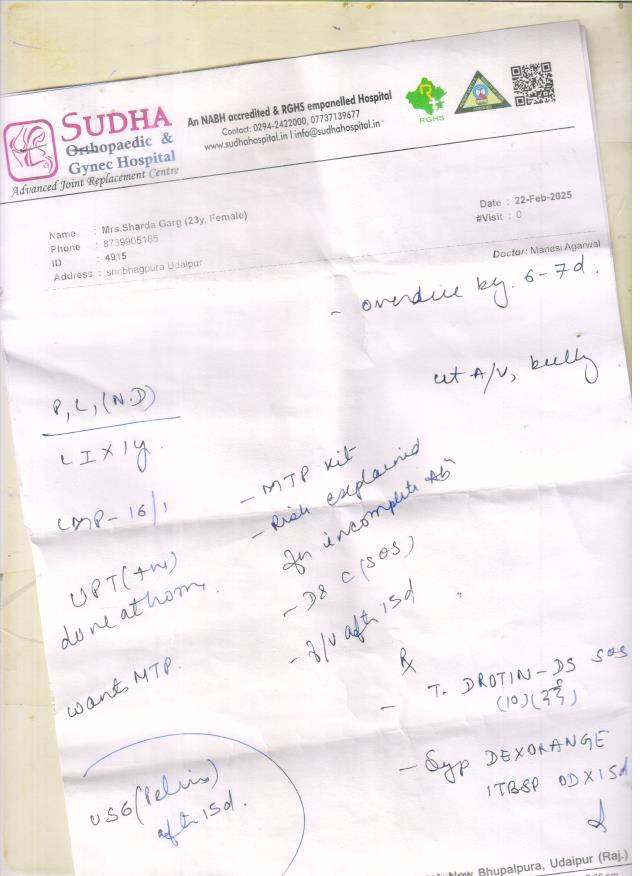 SUDHA
Orthopaedic &
Gynec Hospital
Advanced Joint Replacement Centre
An NABH accredited & RGHS empanelled Hospital
Contact: 0294-2422000, 07737139677
www.sudhahospital.in | info@sudhahospital.in
RGHS
Name : Mrs.Sharda Garg (23y, Female)
Phone : 8739905185
ID : 4915
Address : shobhagpura Udaipur
Date : 22-Feb-2025
#Visit : 0
Doctor: Manesi Agarwal
- overdue by 6-7d.
ut A/V, bulky
P1L1(N.D)
LMP- 16/1
UPT(+ve)
done at home.
wants MTP.
- MTP Kit
- Risk explained
for incomplete Ab
- D& C (SOS)
- f/u after 15d
USG (Pelvis)
after 15d.
Rx
- T. DROTIN-DS SOS
(10)
- Syp DEXORANGE
1TBSP OD X 15d
New Bhupalpura, Udaipur (Raj.)